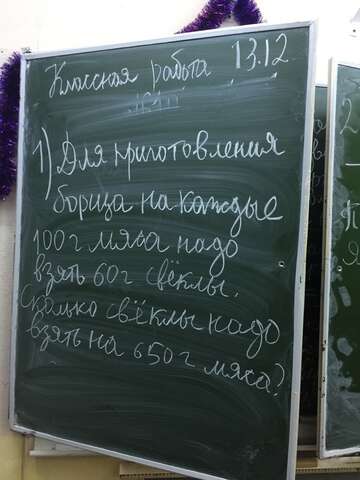 Классная работа 13.12
1) Для приготовления
борща на каждые
100 г мяса надо
взять 60 г свёклы.
Сколько свёклы надо
взять на 650 г мяса?
2
К
Я